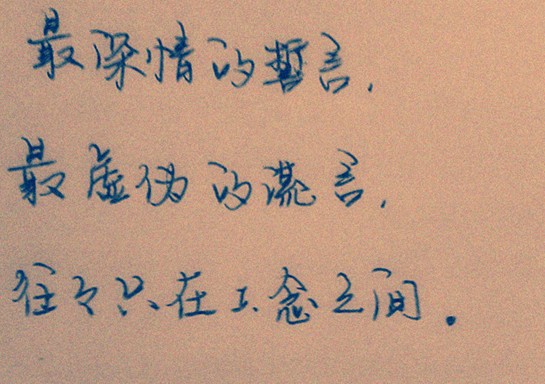 最深情的誓言,
最虚伪的谎言,
往々只在一念之间.